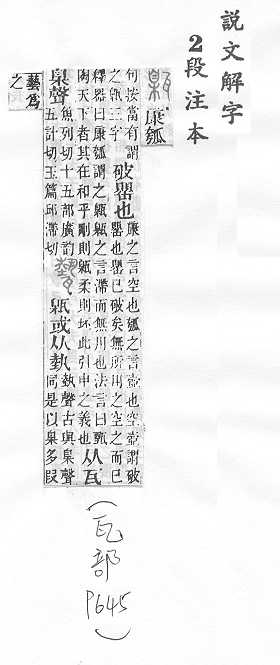 說文解字
2段注本
甈 康瓠
句按當有謂
之甈三字
破罌也
康之言空也瓠之言壺也空壺謂破
罌也罌已破矣無所用之空之而已
釋器曰康瓠謂之甈甈之言滯而無用也法言曰甄
陶天下者其在和乎剛則甈柔則坏此引申之義也
从瓦
臬聲
魚列切十五部廣韵
五計切玉篇邱滯切
甈或从埶
埶聲古與臬聲
同是以臬多叚
藝爲
之
(瓦部 P645)